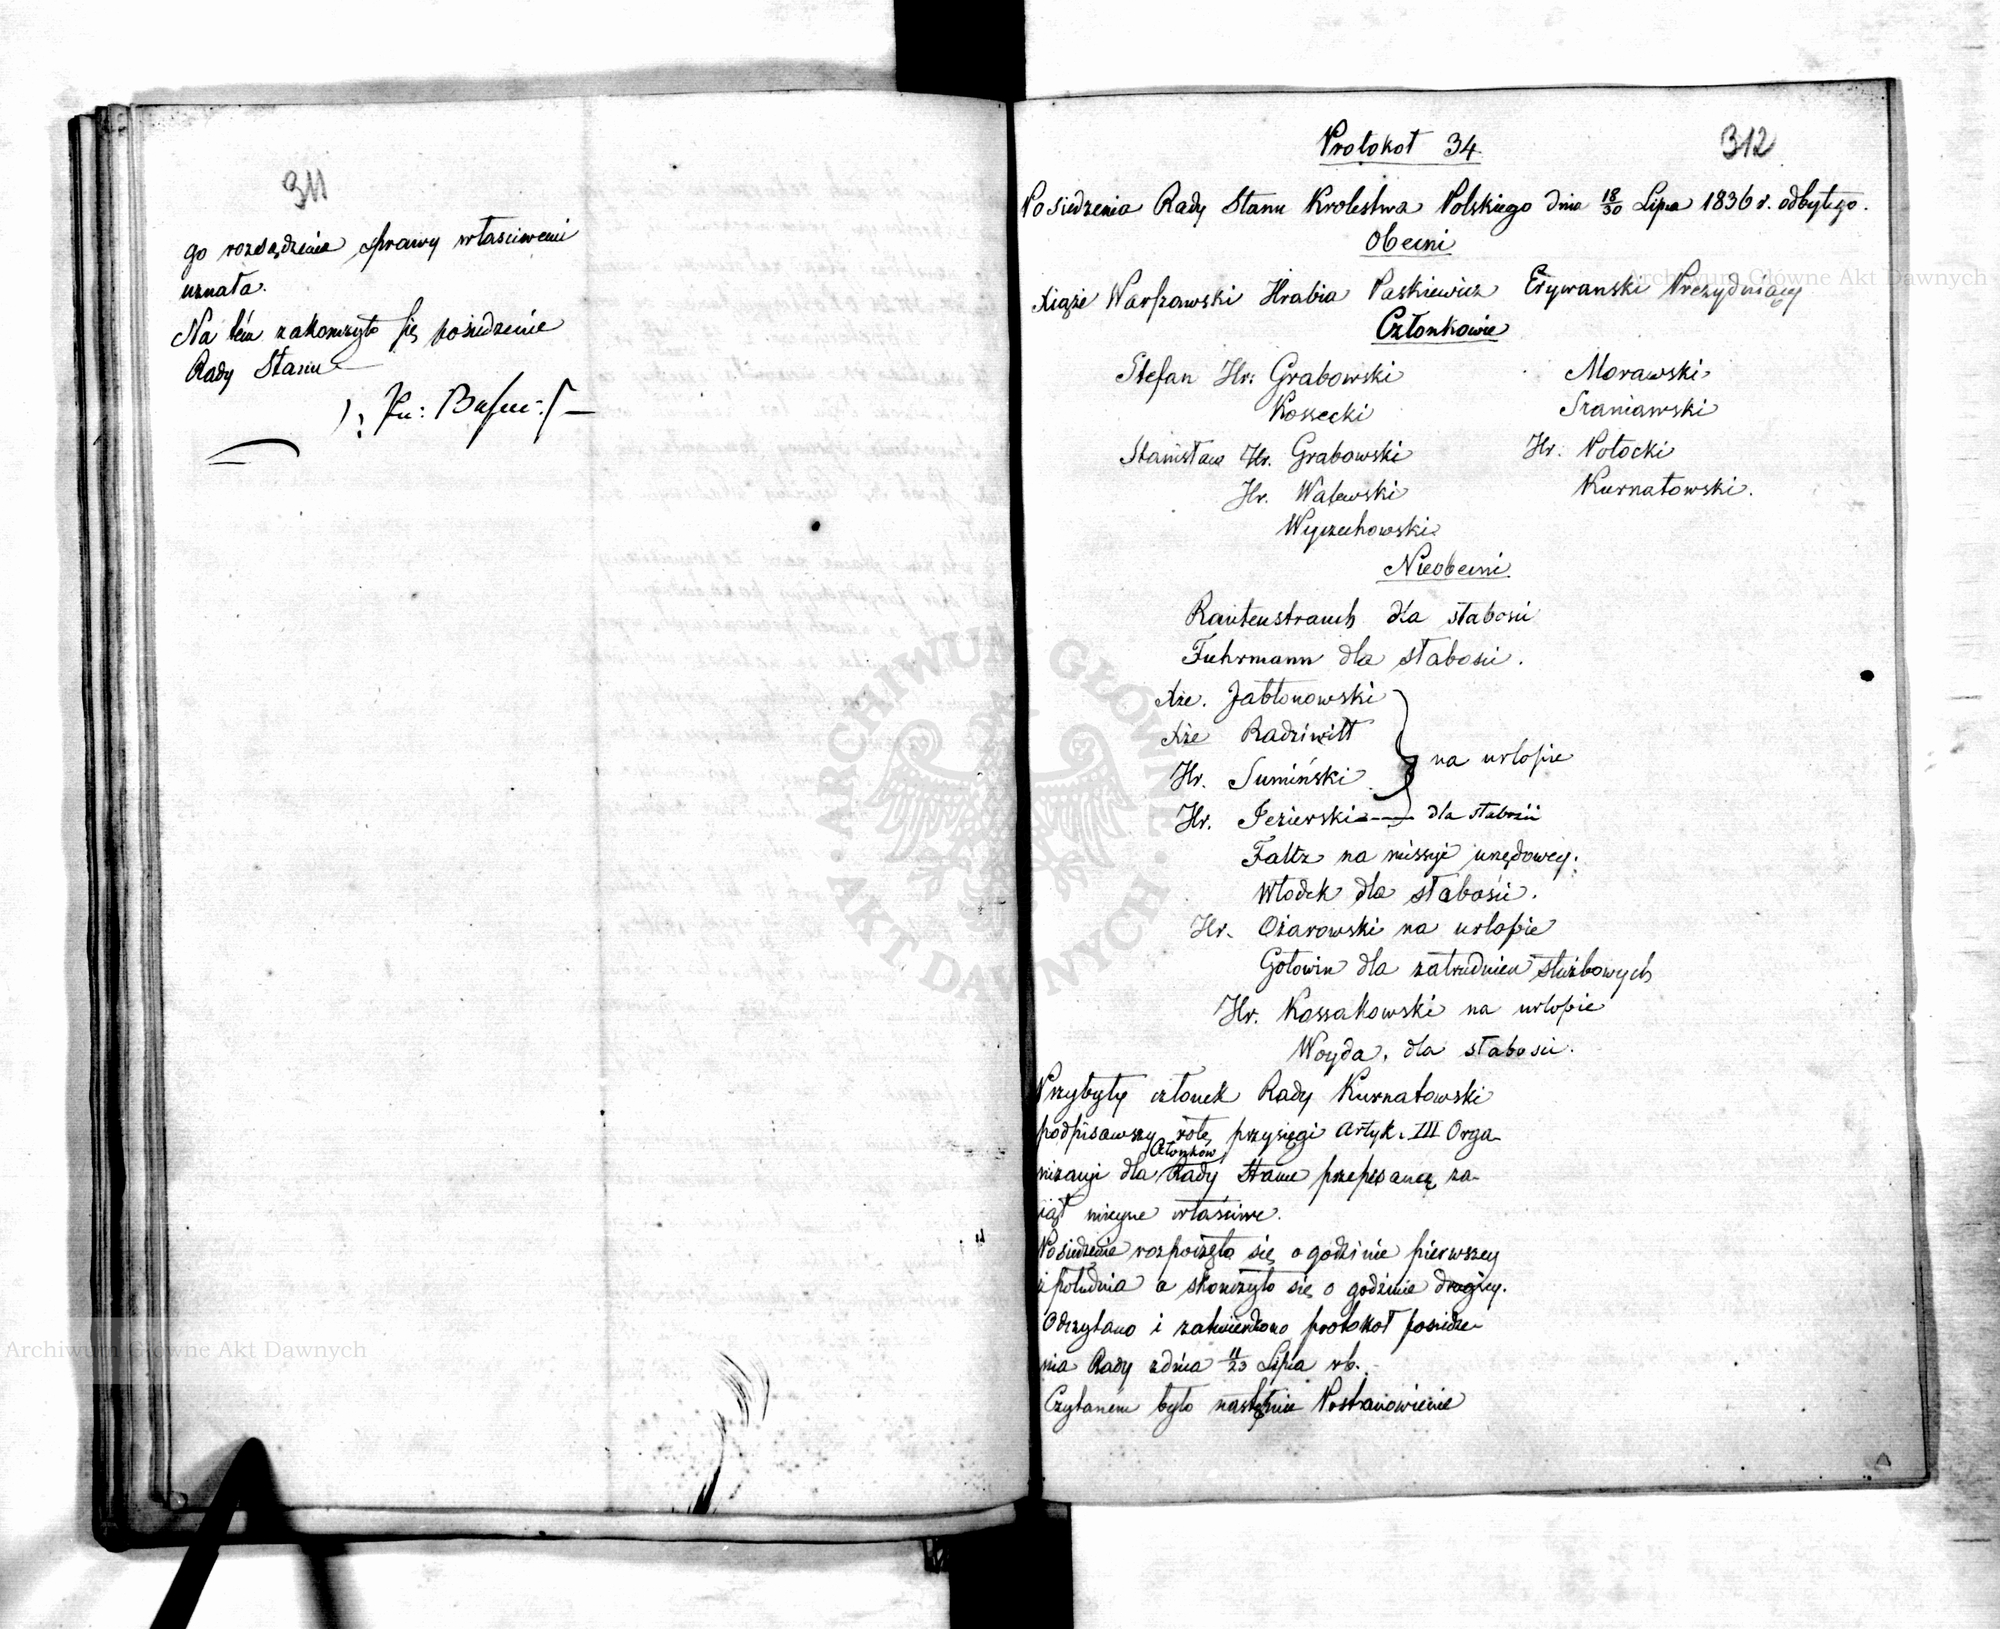 311
go rozsądzenia sprawy właściwemi
uznała.
Na tém zakończyło się posiedzenie
Rady Stanu
312
Protokoł 34
Posiedzenia Rady Stanu Krolestwa Polskiego dnia 18/30 Lipca 1836 r. odbytego.
Obecni
Xiąże Warszawski Hrabia Paskiewicz Erywanski Prezydujący
Członkowie
Stefan Hr: Grabowski
Kossecki
Stanisław Hr. Grabowski
Hr. Walewski
Wyczechowski
Morawski
Szaniawski
Hr. Potocki
Kurnatowski.
Nieobecni
Rautenstrauch dla słabości
Fuhrmann dla słabości.
Xże. Jabłonowski
Xże Radziwiłł
Hr. Sumiński
na urlopie
Hr. Jezierski dla słabości
Faltz na missyi urzędowey.
Włodek dla słabości.
Hr. Ożarowski na urlopie
Gołowin dla zatrudnień służbowych
Hr. Kossakowski na urlopie
Woyda, dla słabości.
Przybyły członek Rady Kurnatowski
podpisawszy rotę przysięgi Artyk. III Orga-
nizacyi dla Członków Rady Stanu przepisaną za-
iął mieysce właściwe.
Posiedzenie rozpoczęło się o godzinie pierwszey
z południa a skończyło się o godzinie drugiey.
Odczytano i zatwierdzono protokoł posiedze-
nia Rady z dnia 11/23 Lipca rb.
Czytaném było następnie Postanowienie
Archiwum Główne Akt Dawnych
Archiwum Główne Akt Dawnych
ARCHIWUM GŁÓWNE · AKT DAWNYCH ·